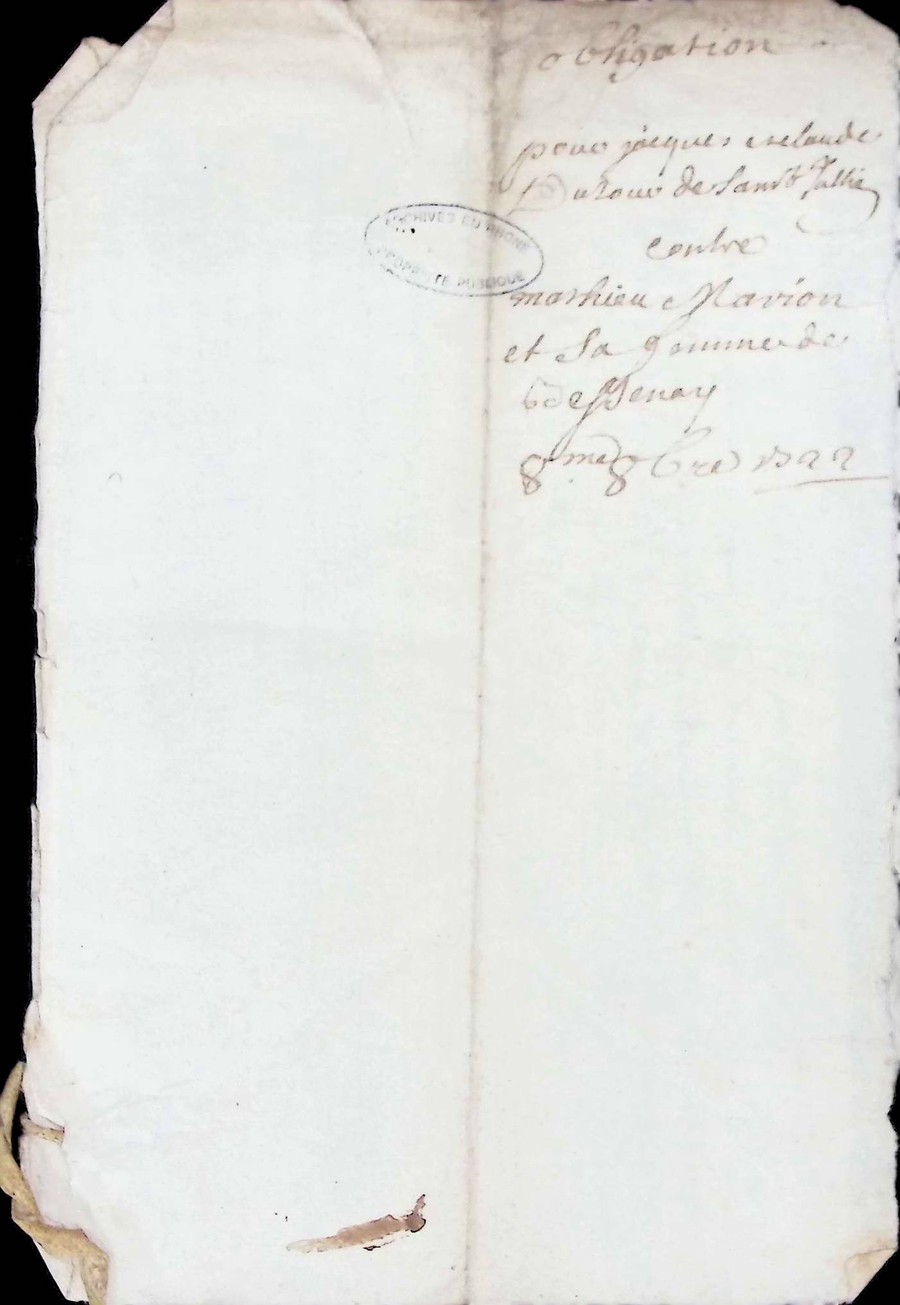 obligation
pour jacques et claude
Dutour de Sainct Jullie
contre
mathieu Marion
et Sa femme de
8me 8bre 1722
ARCHIVES DU RHONE
PROPRIÉTÉ PUBLIQUE